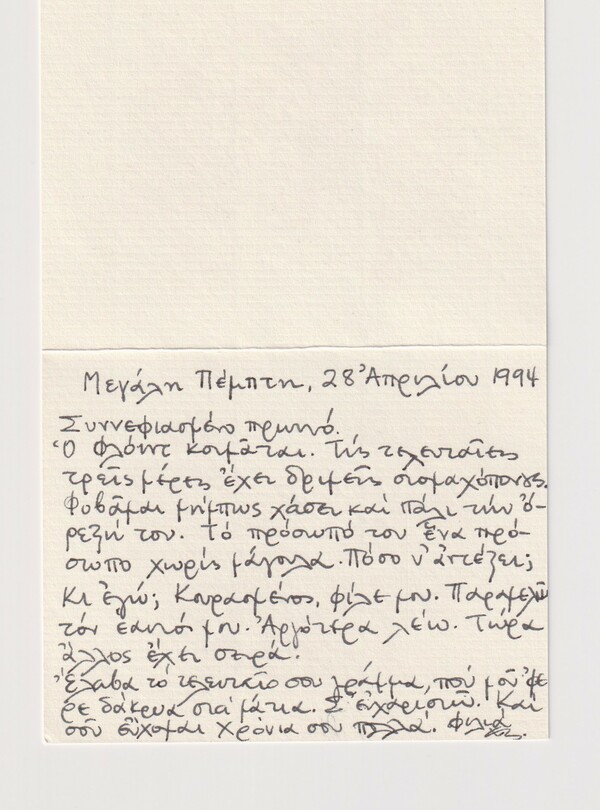 Μεγάλη Πέμπτη, 28 Ἀπριλίου 1994
Συννεφιασμένο πρωινό.
Ὁ Φλόυντ κοιμᾶται. Τίς τελευταῖες
τρεῖς μέρες ἔχει δριμεῖς στομαχόπονους.
Φοβᾶμαι μήπως χάσει καί πάλι τήν ὄ-
ρεξή του. Τό πρόσωπό του ἕνα πρό-
σωπο χωρίς μάγουλα. Πόσο ν' ἀντέξει;
Κι ἐγώ; Κουρασμένος, φίλε μου. Παραμελῶ
τόν ἑαυτό μου. Ἀργότερα λέω. Τώρα
ἄλλος ἔχει σειρά.
Ἔλαβα τό τελευταῖο σου γράμμα, πού μοῦ 'φε
ρε δάκρυα στά μάτια. Σ' εὐχαριστῶ. Καί
σοῦ εὔχομαι χρόνια σου πολλά. Φιλιά